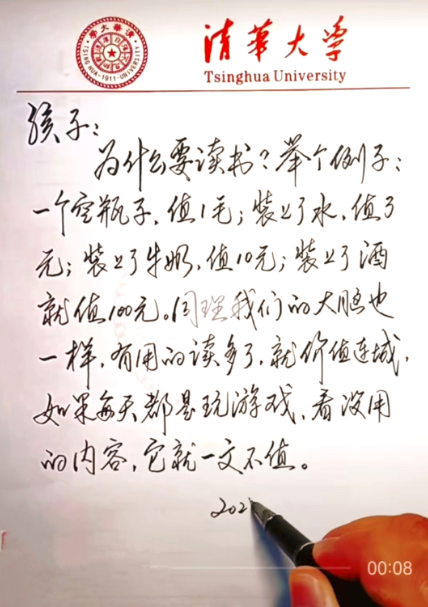 清華大学
Tsinghua University
孩子：
为什么要读书？举个例子：
一个空瓶子，值1毛；装上了水，值3
元；装上了牛奶，值10元；装上了酒
就值100元。同理我们的大脑也
一样，有用的读多了，就价值连城，
如果每天都是玩游戏，看没用
的内容，它就一文不值。
202
00:08